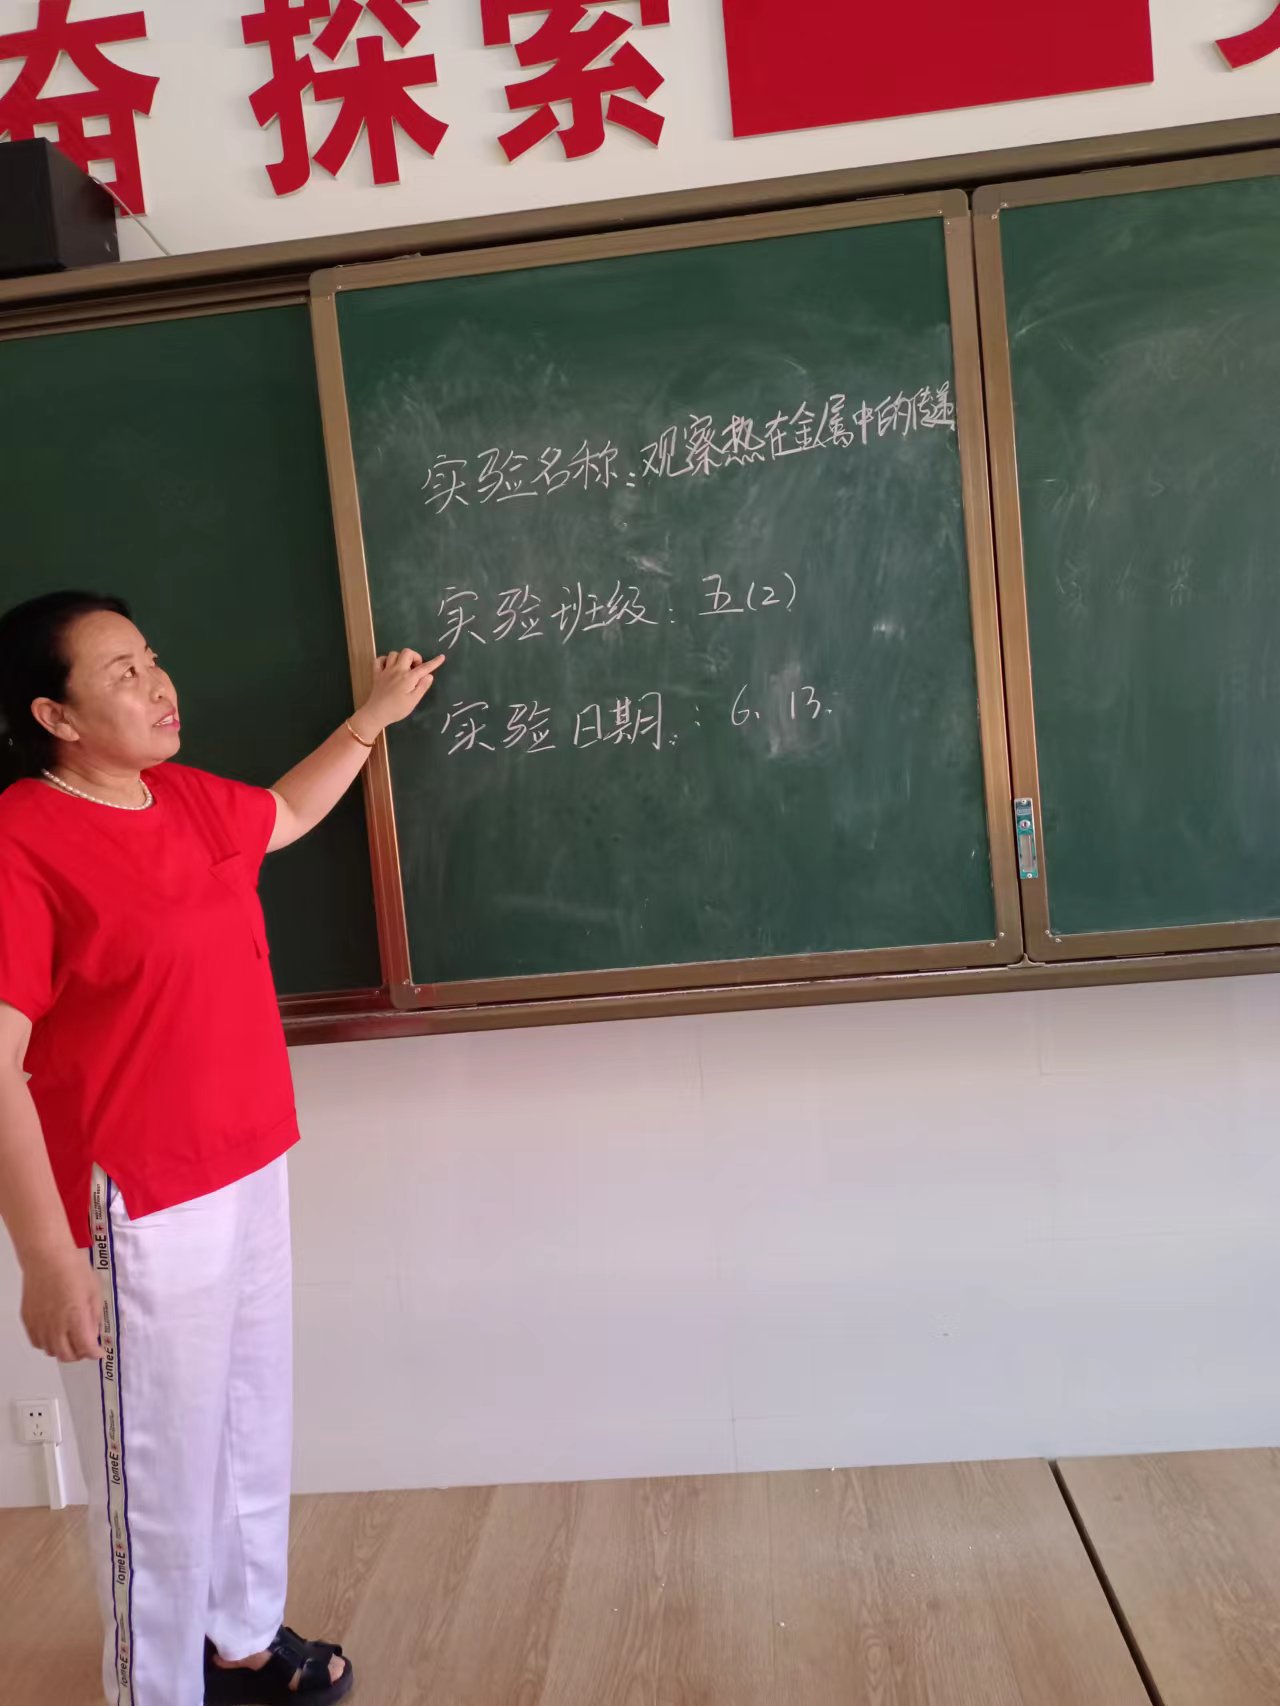 奋 探索
实验名称：观察热在金属中的传递
实验班级：五(2)
实验日期：6.13.
lomeE
lomeE
lomeE
lomeE
lomeE